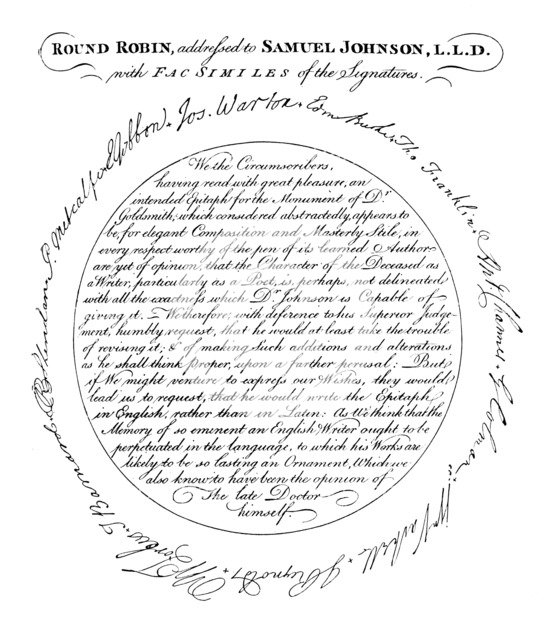 ROUND ROBIN, addressed to SAMUEL JOHNSON, L.L.D.
with FAC SIMILES of the Signatures.
We the Circumscribers,
having read with great pleasure, an
intended Epitaph for the Monument of Dr
Goldsmith; which considered abstractedly, appears to
be, for elegant Composition and Masterly Stile, in
every respect worthy of the pen of its learned Author;
are yet of opinion, that the Character of the Deceased as
a Writer, particularly as a Poet, is, perhaps, not delineated
with all the exactness which Dr Johnson is Capable of
giving it. – We therefore, with deference to his Superior Judge-
ment, humbly request, that he would at least take the trouble
of revising it; & of making Such additions and alterations
as he shall think proper, upon a farther perusal: But
if We might venture to express our Wishes, they would
lead us to request, that he would write the Epitaph
in English, rather than in Latin: As We think that the
Memory of so eminent an English Writer ought to be
perpetuated in the language, to which his Works are
likely to be so lasting an Ornament, Which we
also know to have been the opinion of
The late Doctor
himself.
Edm Burke
Tho. Franklin
Ant. Chamier
G Colman
Wm Vachell
J Reynolds
W Forbes
T Barnard
R B Sheridan
P Metcalfe
E Gibbon
Jos. Warton